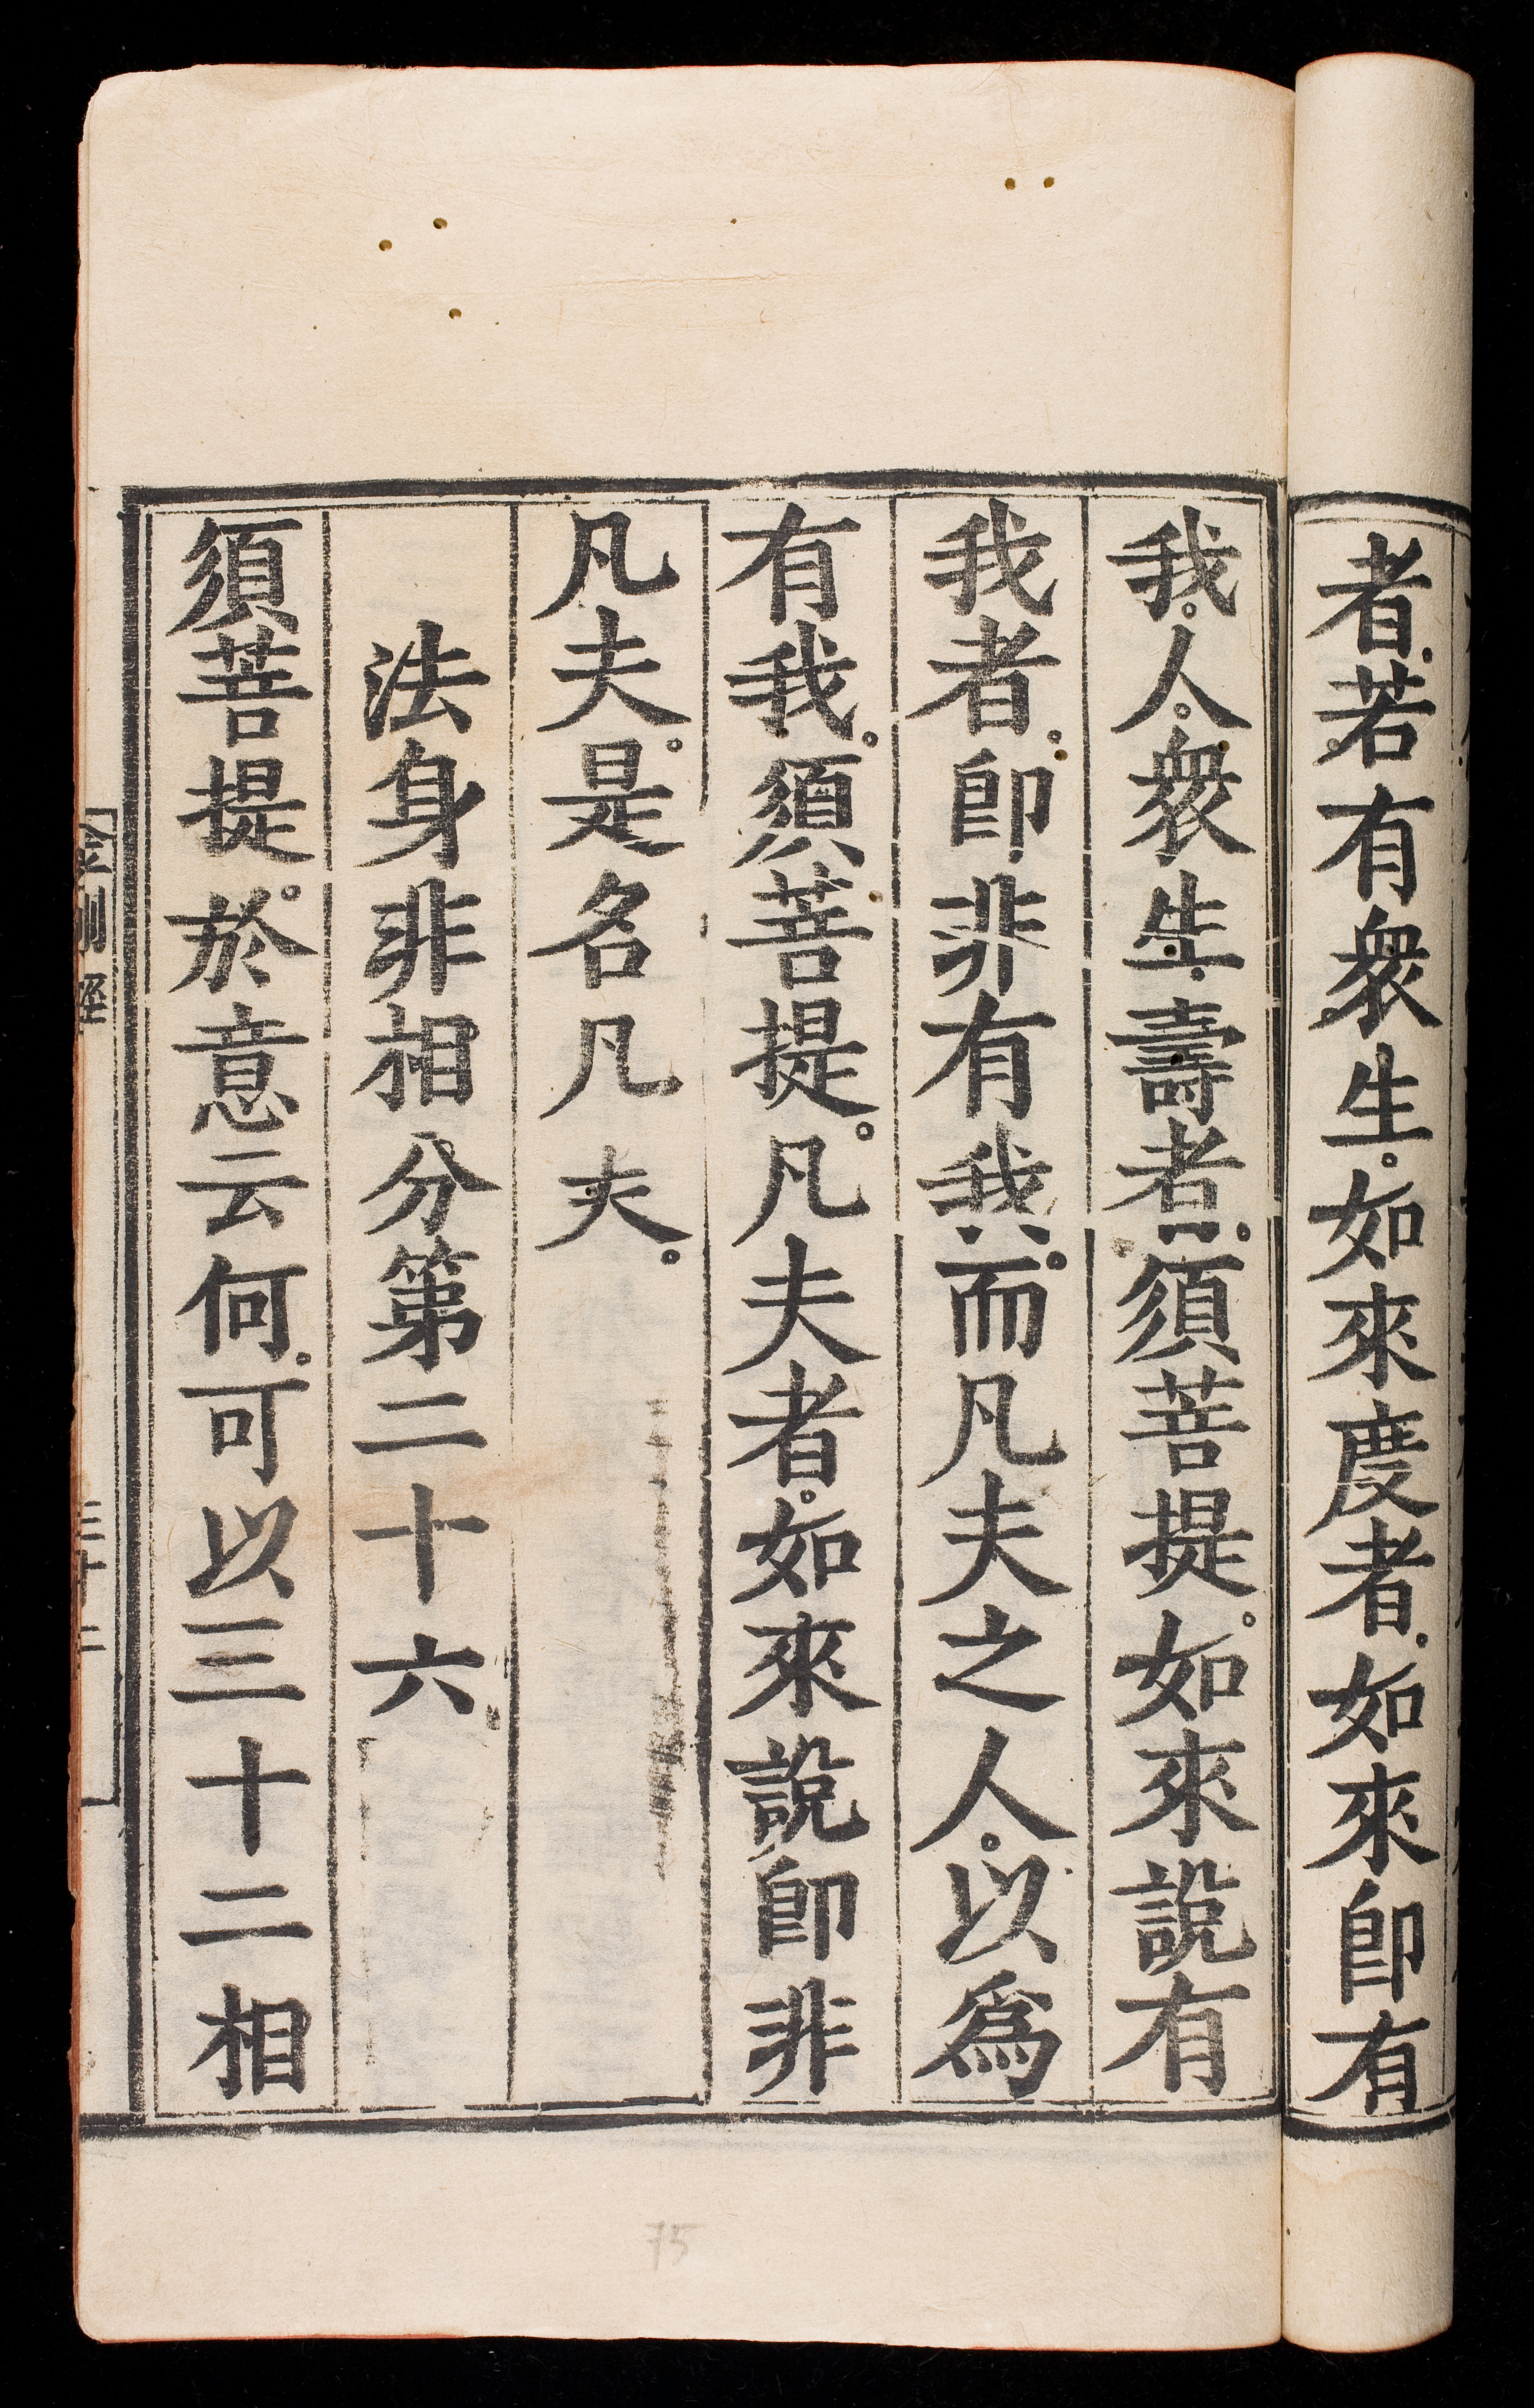 者。若有衆生。如來度者。如來卽有
我。人。衆生。壽者。須菩提。如來說有
我者。卽非有我。而凡夫之人。以爲
有我。須菩提。凡夫者。如來說卽非
凡夫。是名凡夫。
法身非相分第二十六
須菩提。於意云何。可以三十二相
75